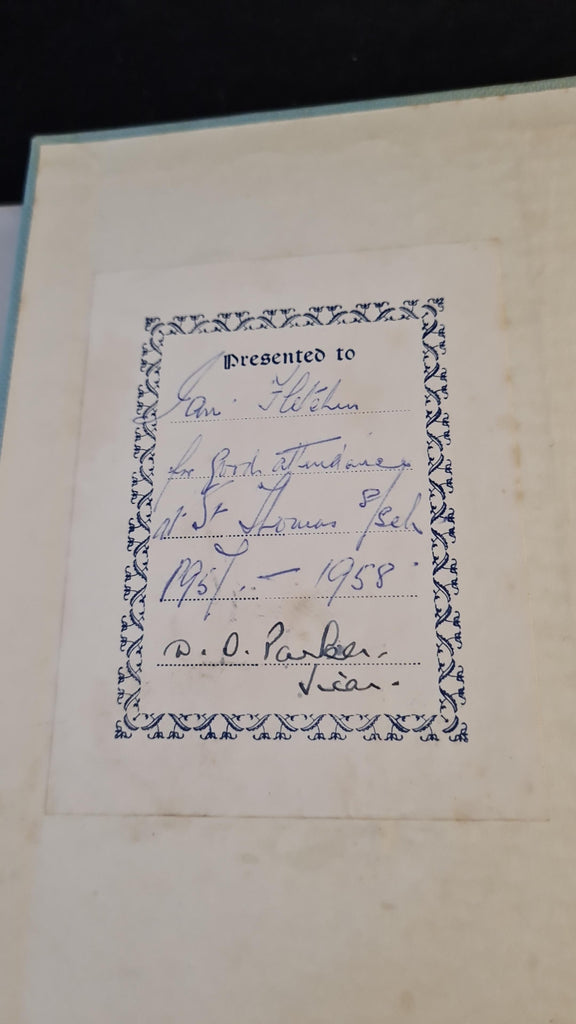 Presented to
Ian Fletcher
for good attendance
at St Thomas S/Sch
1957 - 1958
D. O. Parker.
Vicar.